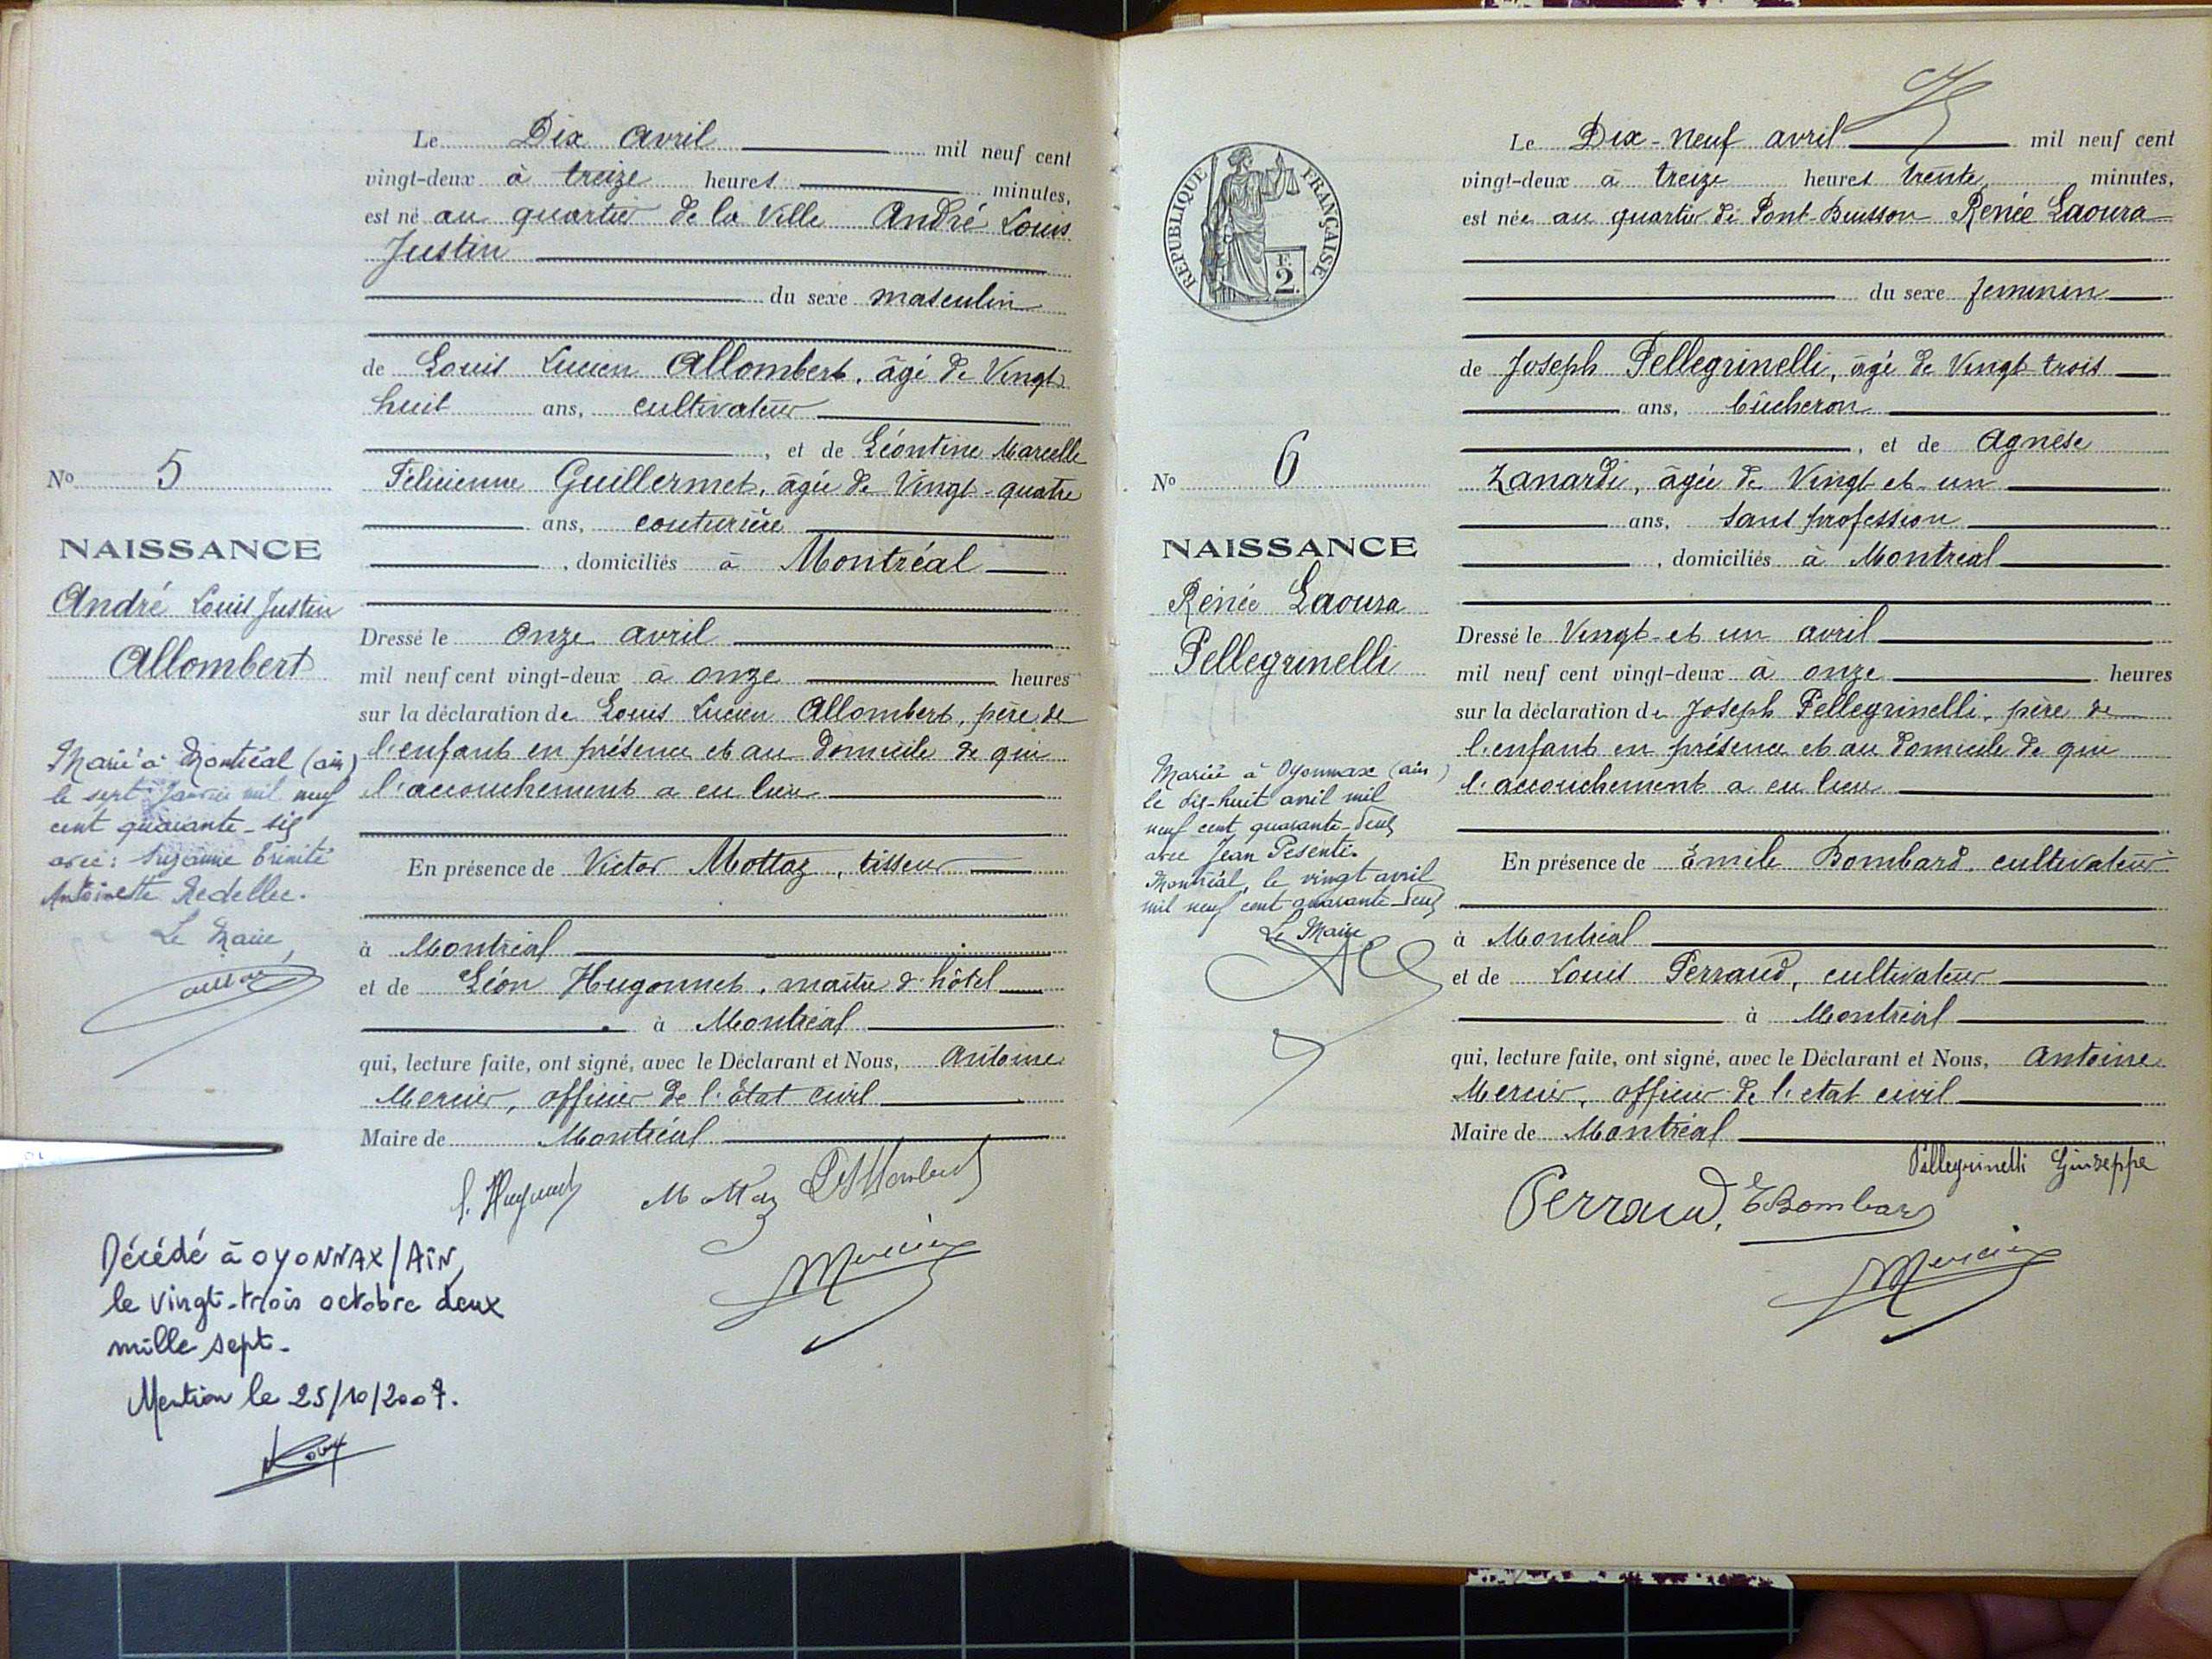 Le Dix avril mil neuf cent
vingt-deux à treize heures minutes,
est né au quartier de la Ville André Louis
Justin
du sexe masculin
de Louis Lucien Allombert, âgé de Vingt
huit ans, cultivateur
, et de Léontine Marcelle
Félicienne Guillermet, âgée de Vingt-quatre
ans, couturière
, domiciliés à Montréal
Dressé le onze avril
mil neuf cent vingt-deux à onze heures
sur la déclaration de Louis Lucien Allombert, père de
l'enfant en présence et au domicile de qui
l'accouchement a eu lieu
En présence de Victor Mottaz, tisseur
à Montréal
et de Léon Hugonnet, maître d'hôtel
à Montréal
qui, lecture faite, ont signé, avec le Déclarant et Nous, Antoine
Mercier, officier de l'Etat civil
Maire de Montréal
Mottaz
Mercier
No 5
NAISSANCE
André Louis Justin
Allombert
Marié à Montréal (ain)
le sept Janvier mil neuf
cent quarante-six
avec: Suzanne Trinité
Antoinette
Le Maire,
Décédé à OYONNAX/AIN,
le vingt-trois octobre deux
mille sept.
Mention le 25/10/2007.
RÉPUBLIQUE FRANÇAISE
F.
2.
Le Dix-neuf avril mil neuf cent
vingt-deux à treize heures trente minutes,
est née au quartier de Pont-Buisson Renée Laoura
du sexe feminin
de Joseph Pellegrinelli, âgé de Vingt trois
ans, bûcheron
, et de Agnèse
Zanardi, âgée de Vingt et un
ans, sans profession
, domiciliés à Montréal
Dressé le Vingt-et un avril
mil neuf cent vingt-deux à onze heures
sur la déclaration de Joseph Pellegrinelli, père de
l'enfant en présence et au domicile de qui
l'accouchement a eu lieu
En présence de Emile Bombard, cultivateur
à Montréal
et de Louis Perraud, cultivateur
à Montréal
qui, lecture faite, ont signé, avec le Déclarant et Nous, Antoine
Mercier, officier de l'etat civil
Maire de Montréal
Pellegrinelli Giuseppe
Perraud, E Bombard
Mercier
No 6
NAISSANCE
Renée Laoura
Pellegrinelli
Mariée à Oyonnax (ain)
le dix-huit avril mil
neuf cent quarante-deux
avec Jean Pesenti.
Montréal, le vingt avril
mil neuf cent quarante-deux
Le Maire